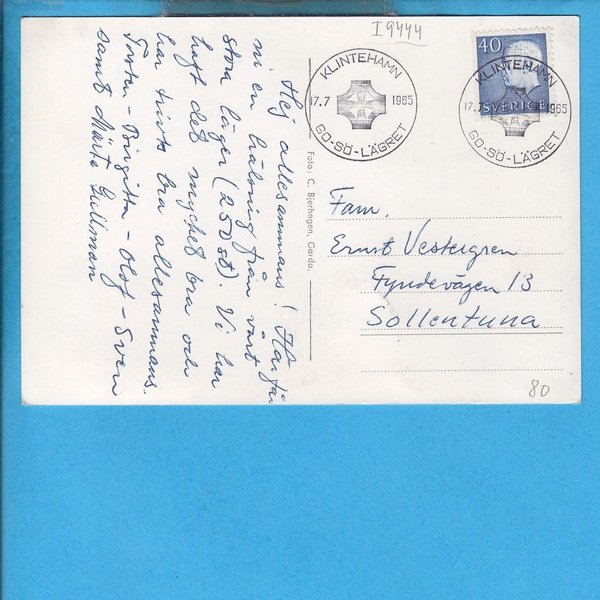 I9444
40
SVERIGE
KLINTEHAMN
17.7 1965
GO-SÖ-LÄGRET
KLINTEHAMN
17.7 1965
GO-SÖ-LÄGRET
Hej allesammans! Här får
ni en hälsning från vårt
stora läger (250 st). Vi har
haft det mycket bra och
har trivts bra allesammans.
Torsten - Birgitta - Olof - Sven
samt Märta Gullman
Foto: C. Bjerhagen, Garda.
Fam.
Ernst Vestergren
Fyndevägen 13
Sollentuna
80